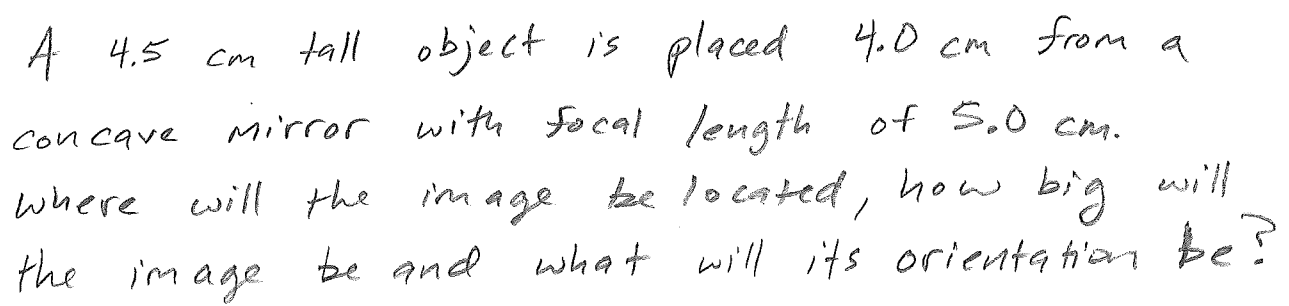 A 4.5 cm tall object is placed 4.0 cm from a
concave mirror with focal length of 5.0 cm.
Where will the image be located, how big will
the image be and what will its orientation be?